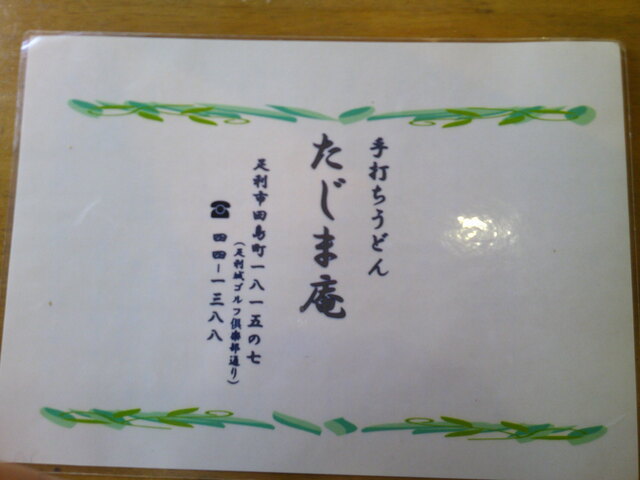 手打ちうどん
たじま庵
足利市田島町一八一五の七
(足利城ゴルフ倶楽部通り)
☎ 四四ー一三八八